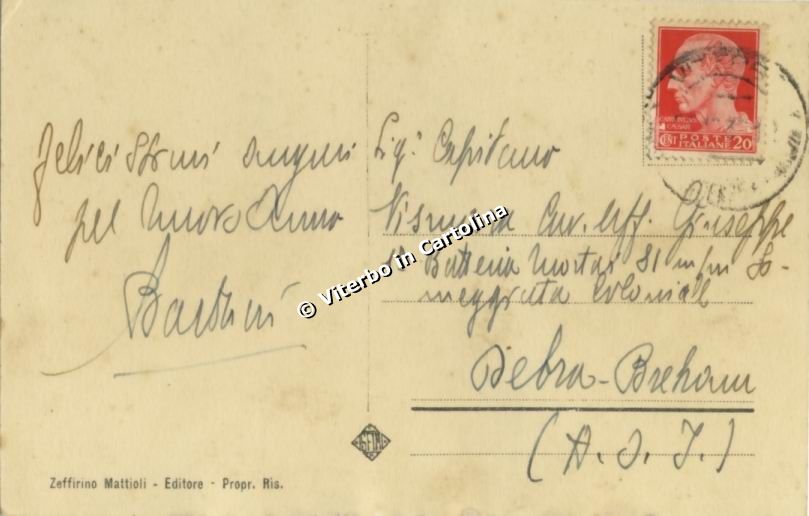 Felicissimi auguri
pel nuovo Anno
Sig. Capitano
Cav. Uff. Giuseppe
Batteria Mortai 81 m/m So-
meggiata Coloniale
Debra-Breham
(A. O. I.)
CAIO GIULIO
CESARE
POSTE
CENT ITALIANE 20
© Viterbo in Cartolina
Zeffirino Mattioli - Editore - Propr. Ris.